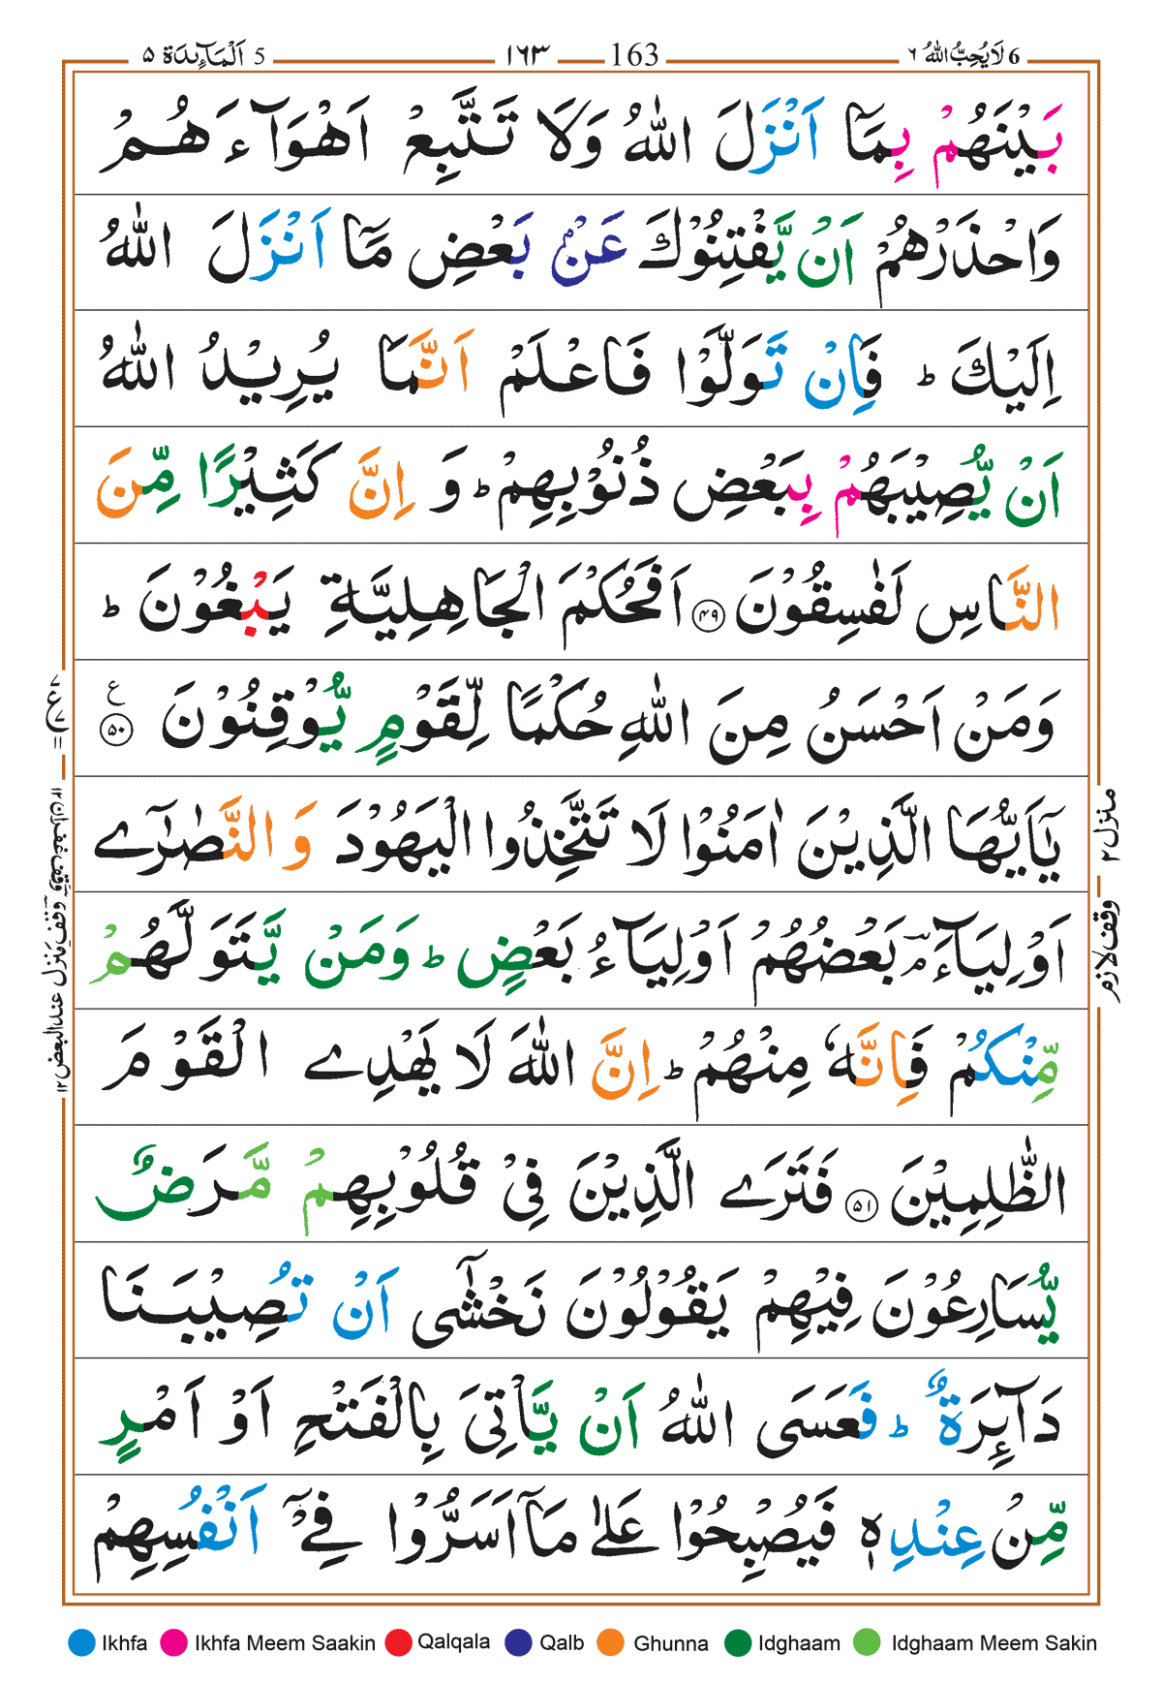 6 لَا يُحِبُّ اللهُ ٦ 163 ١٦٣ 5 اَلْمَآئِدَة ۵
بَيْنَهُمْ بِمَاۤ اَنْزَلَ اللّٰهُ وَلَا تَتَّبِعْ اَهْوَآءَهُمْ
وَاحْذَرْهُمْ اَنْ يَّفْتِنُوْكَ عَنْۢ بَعْضِ مَاۤ اَنْزَلَ اللّٰهُ
اِلَيْكَ ؕ فَاِنْ تَوَلَّوْا فَاعْلَمْ اَنَّمَا يُرِيْدُ اللّٰهُ
اَنْ يُّصِيْبَهُمْ بِبَعْضِ ذُنُوْبِهِمْ ؕ وَ اِنَّ كَثِيْرًا مِّنَ
النَّاسِ لَفٰسِقُوْنَ ﴿۴۹﴾ اَفَحُكْمَ الْجَاهِلِيَّةِ يَبْغُوْنَ ؕ
وَمَنْ اَحْسَنُ مِنَ اللّٰهِ حُكْمًا لِّقَوْمٍ يُّوْقِنُوْنَ ﴿۵۰﴾ ع
يٰۤاَيُّهَا الَّذِيْنَ اٰمَنُوْا لَا تَتَّخِذُوا الْيَهُوْدَ وَ النَّصٰرٰۤے
اَوْلِيَآءَ ۘؔ بَعْضُهُمْ اَوْلِيَآءُ بَعْضٍ ؕ وَمَنْ يَّتَوَلَّهُمْ
مِّنْكُمْ فَاِنَّهٗ مِنْهُمْ ؕ اِنَّ اللّٰهَ لَا يَهْدِے الْقَوْمَ
الظّٰلِمِيْنَ ﴿۵۱﴾ فَتَرَے الَّذِيْنَ فِیْ قُلُوْبِهِمْ مَّرَضٌ
يُّسَارِعُوْنَ فِيْهِمْ يَقُوْلُوْنَ نَخْشٰۤی اَنْ تُصِيْبَنَا
دَآئِرَةٌ ؕ فَعَسَی اللّٰهُ اَنْ يَّاْتِیَ بِالْفَتْحِ اَوْ اَمْرٍ
مِّنْ عِنْدِهٖ فَيُصْبِحُوْا عَلٰی مَاۤ اَسَرُّوْا فِےْۤ اَنْفُسِهِمْ
منزل ٢
وقف لازم
Ikhfa Ikhfa Meem Saakin Qalqala Qalb Ghunna Idghaam Idghaam Meem Sakin